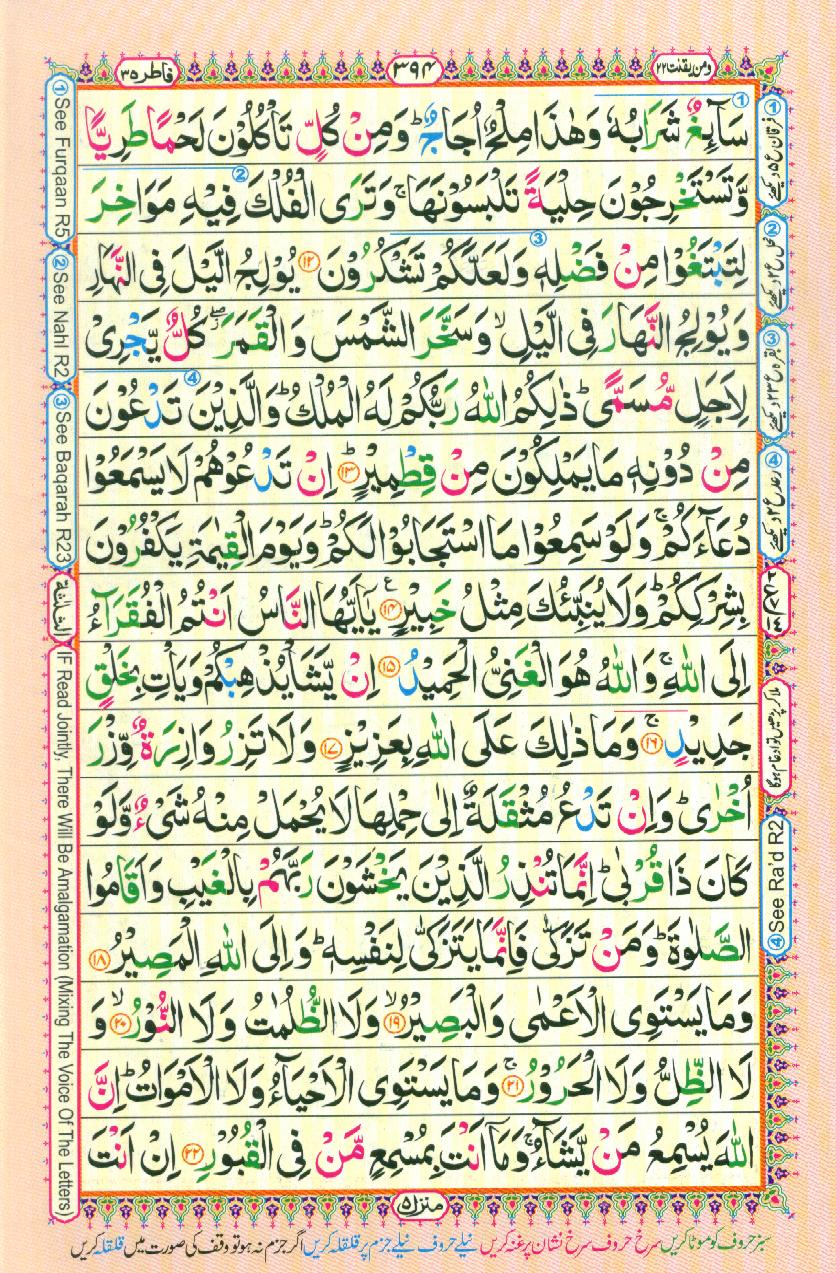 ومن یقنت ۲۲
۳۹۴
فاطر ۳۵
سَآىِٕغٌ شَرَابُهٗ وَهٰذَا مِلْحٌ اُجَاجٌ ؕ وَمِنْ كُلٍّ تَاْكُلُوْنَ لَحْمًا طَرِیًّا
وَّتَسْتَخْرِجُوْنَ حِلْیَةً تَلْبَسُوْنَهَا ۚ وَتَرَی الْفُلْكَ فِیْهِ مَوَاخِرَ
لِتَبْتَغُوْا مِنْ فَضْلِهٖ وَلَعَلَّكُمْ تَشْكُرُوْنَ ۱۲ یُوْلِجُ الَّیْلَ فِی النَّهَارِ
وَیُوْلِجُ النَّهَارَ فِی الَّیْلِ ۙ وَسَخَّرَ الشَّمْسَ وَالْقَمَرَ ۖ كُلٌّ یَّجْرِیْ
لِاَجَلٍ مُّسَمًّی ؕ ذٰلِكُمُ اللّٰهُ رَبُّكُمْ لَهُ الْمُلْكُ ؕ وَالَّذِیْنَ تَدْعُوْنَ
مِنْ دُوْنِهٖ مَا یَمْلِكُوْنَ مِنْ قِطْمِیْرٍ ؕ ۱۳ اِنْ تَدْعُوْهُمْ لَا یَسْمَعُوْا
دُعَآءَكُمْ ۚ وَلَوْ سَمِعُوْا مَا اسْتَجَابُوْا لَكُمْ ؕ وَیَوْمَ الْقِیٰمَةِ یَكْفُرُوْنَ
بِشِرْكِكُمْ ؕ وَلَا یُنَبِّئُكَ مِثْلُ خَبِیْرٍ ۱۴ یٰۤاَیُّهَا النَّاسُ اَنْتُمُ الْفُقَرَآءُ
اِلَی اللّٰهِ ۚ وَاللّٰهُ هُوَ الْغَنِیُّ الْحَمِیْدُ ۱۵ اِنْ یَّشَاْ یُذْهِبْكُمْ وَیَاْتِ بِخَلْقٍ
جَدِیْدٍ ۚ ۱۶ وَمَا ذٰلِكَ عَلَی اللّٰهِ بِعَزِیْزٍ ۱۷ وَلَا تَزِرُ وَازِرَةٌ وِّزْرَ
اُخْرٰی ؕ وَاِنْ تَدْعُ مُثْقَلَةٌ اِلٰی حِمْلِهَا لَا یُحْمَلْ مِنْهُ شَیْءٌ وَّلَوْ
كَانَ ذَا قُرْبٰی ؕ اِنَّمَا تُنْذِرُ الَّذِیْنَ یَخْشَوْنَ رَبَّهُمْ بِالْغَیْبِ وَاَقَامُوا
الصَّلٰوةَ ؕ وَمَنْ تَزَكّٰی فَاِنَّمَا یَتَزَكّٰی لِنَفْسِهٖ ؕ وَاِلَی اللّٰهِ الْمَصِیْرُ ۱۸
وَمَا یَسْتَوِی الْاَعْمٰی وَالْبَصِیْرُ ۙ ۱۹ وَلَا الظُّلُمٰتُ وَلَا النُّوْرُ ۙ ۲۰ وَ
لَا الظِّلُّ وَلَا الْحَرُوْرُ ۚ ۲۱ وَمَا یَسْتَوِی الْاَحْیَآءُ وَلَا الْاَمْوَاتُ ؕ اِنَّ
اللّٰهَ یُسْمِعُ مَنْ یَّشَآءُ ۚ وَمَاۤ اَنْتَ بِمُسْمِعٍ مَّنْ فِی الْقُبُوْرِ ۲۲ اِنْ اَنْتَ
منزل ۵
سبز حروف کو موٹا کریں سرخ حروف سرخ نشان پر غنہ کریں نیلے حروف نیلے جزم پر قلقلہ کریں اگر جزم نہ ہو تو وقف کی صورت میں قلقلہ کریں
① See Furqaan R5
② See Nahl R2
③ See Baqarah R23
IF Read Jointly, There Will Be Amalgamation (Mixing The Voice Of The Letters)
④ See Ra'd R2